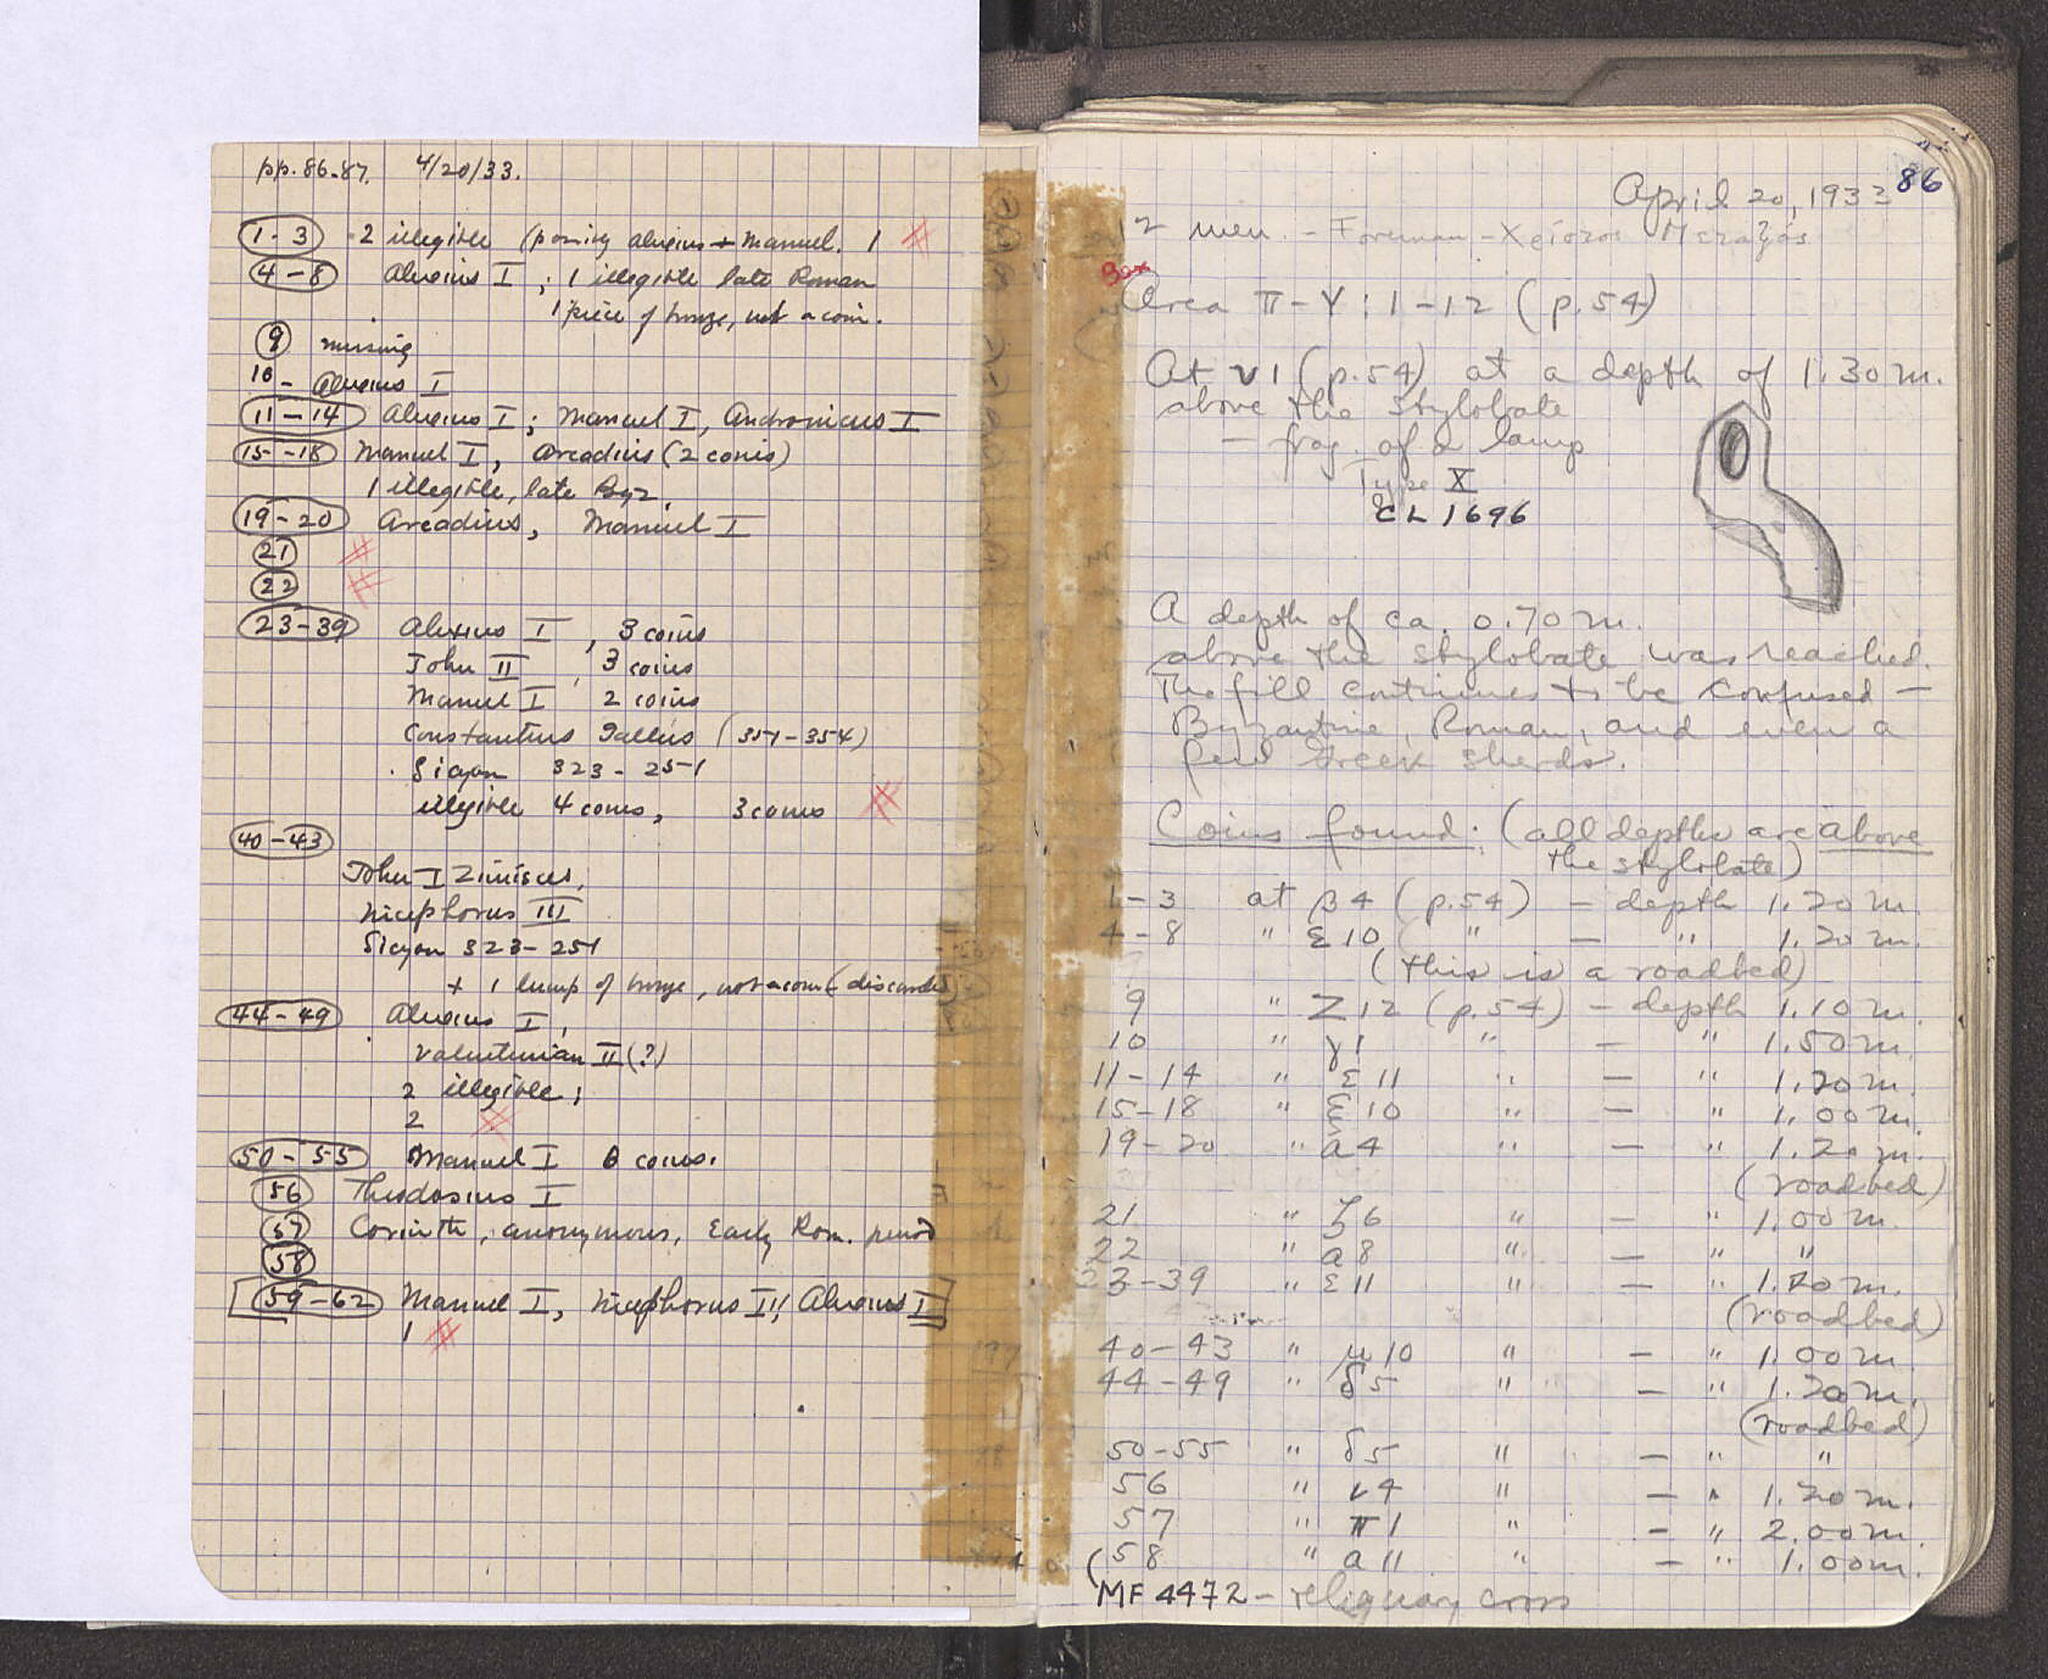 pp. 86-87. 4/20/33.
1-3 2 illegible (possibly Alexius + Manuel. 1 #
4-8 Alexius I ; 1 illegible late Roman
1 piece of bronze, not a coin.
9 missing
10 - Alexius I
11-14 Alexius I ; Manuel I, Andronicus I
15-18 Manuel I, Arcadius (2 coins)
1 illegible, late Byz.
19-20 Arcadius, Manuel I
21 #
22 #
23-39 Alexius I , 3 coins
John II , 3 coins
Manuel I 2 coins
Constantius Gallus (351-354)
Sicyon 323-251
illegible 4 coins, 3 coins #
40-43
John I Zimisces,
Nicephorus III
Sicyon 323-251
+ 1 lump of bronze, not a coin (discarded
44-49 Alexius I,
Valentinian II (?)
2 illegible;
2 #
50-55 Manuel I 6 coins.
56 Theodosius I
57 Corinth, anonymous, Early Rom. period
58
59-62 Manuel I, Nicephorus III, Alexius I
1 #
86
April 20, 1933
12 men. - Foreman - Χρίστος
Area π-γ: 1-12 (p.54)
At ν1 (p.54) at a depth of 1.30 m.
above the stylobate
- frag. of a lamp
Type X
CL 1696
A depth of ca. 0.70 m.
above the stylobate was reached.
The fill continues to be confused -
Byzantine, Roman, and even a
few Greek sherds.
Coins found: (all depths are above
the stylobate)
1-3 at β4 (p.54) - depth 1.20 m.
4-8 " ε10 " - " 1.20 m.
(this is a roadbed)
9 " Z12 (p.54) - depth 1.10 m.
10 " γ1 " - " 1.50 m.
11-14 " ε11 " - " 1.20 m.
15-18 " ε10 " - " 1.00 m.
19-20 " a4 " - " 1.20 m.
(roadbed)
21 " ζ6 " - " 1.00 m.
22 " a8 " - " "
23-39 " ε11 " - " 1.20 m.
(roadbed)
40-43 " μ10 " - " 1.00 m.
44-49 " δ5 " - " 1.20 m.
(roadbed)
50-55 " δ5 " - " "
56 " ν4 " - " 1.20 m.
57 " π1 " - " 2.00 m.
58 " a11 " - " 1.00 m.
MF 4472 - reliquary cross